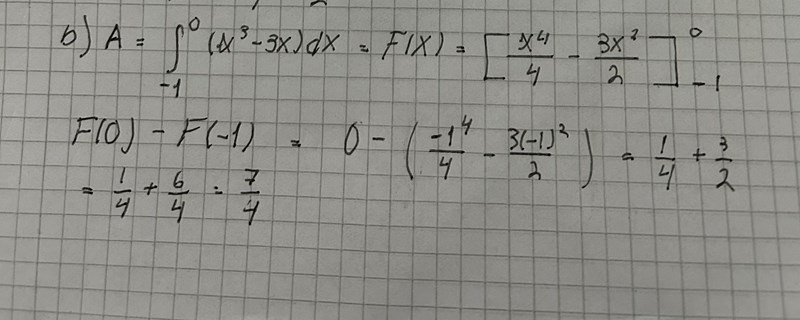 b) A = ∫₋₁⁰ (x³ - 3x) dx = F(x) = [x⁴/4 - 3x²/2]₋₁⁰
F(0) - F(-1) = 0 - (-1⁴/4 - 3(-1)²/2) = 1/4 + 3/2
= 1/4 + 6/4 = 7/4